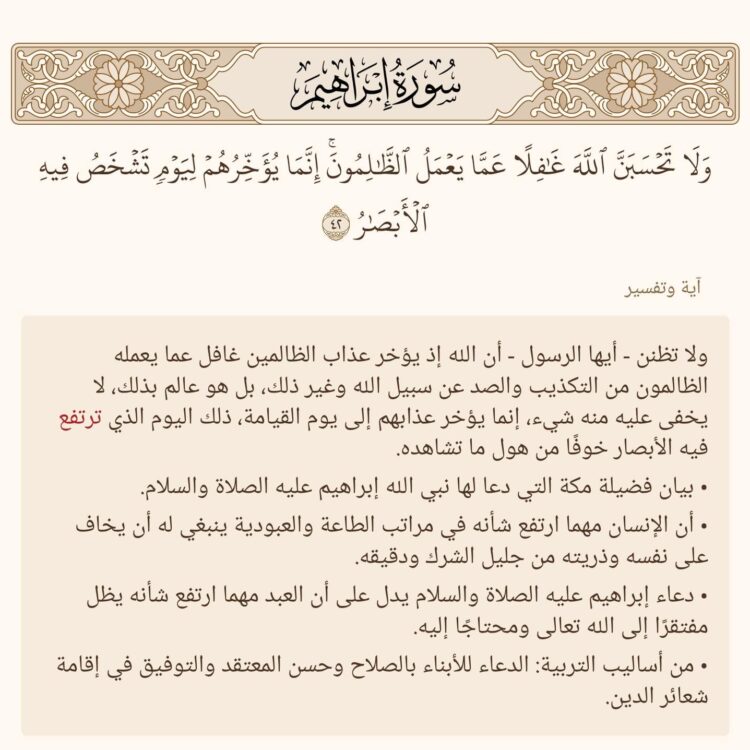 سُورَةُ إِبْرَاهِيمَ
وَلَا تَحْسَبَنَّ ٱللَّهَ غَٰفِلًا عَمَّا يَعْمَلُ ٱلظَّٰلِمُونَۚ إِنَّمَا يُؤَخِّرُهُمْ لِيَوْمٖ تَشْخَصُ فِيهِ
ٱلْأَبْصَٰرُ ٤٢
آية وتفسير
ولا تظنن - أيها الرسول - أن الله إذ يؤخر عذاب الظالمين غافل عما يعمله
الظالمون من التكذيب والصد عن سبيل الله وغير ذلك، بل هو عالم بذلك، لا
يخفى عليه منه شيء، إنما يؤخر عذابهم إلى يوم القيامة، ذلك اليوم الذي ترتفع
فيه الأبصار خوفًا من هول ما تشاهده.
• بيان فضيلة مكة التي دعا لها نبي الله إبراهيم عليه الصلاة والسلام.
• أن الإنسان مهما ارتفع شأنه في مراتب الطاعة والعبودية ينبغي له أن يخاف
على نفسه وذريته من جليل الشرك ودقيقه.
• دعاء إبراهيم عليه الصلاة والسلام يدل على أن العبد مهما ارتفع شأنه يظل
مفتقرًا إلى الله تعالى ومحتاجًا إليه.
• من أساليب التربية: الدعاء للأبناء بالصلاح وحسن المعتقد والتوفيق في إقامة
شعائر الدين.